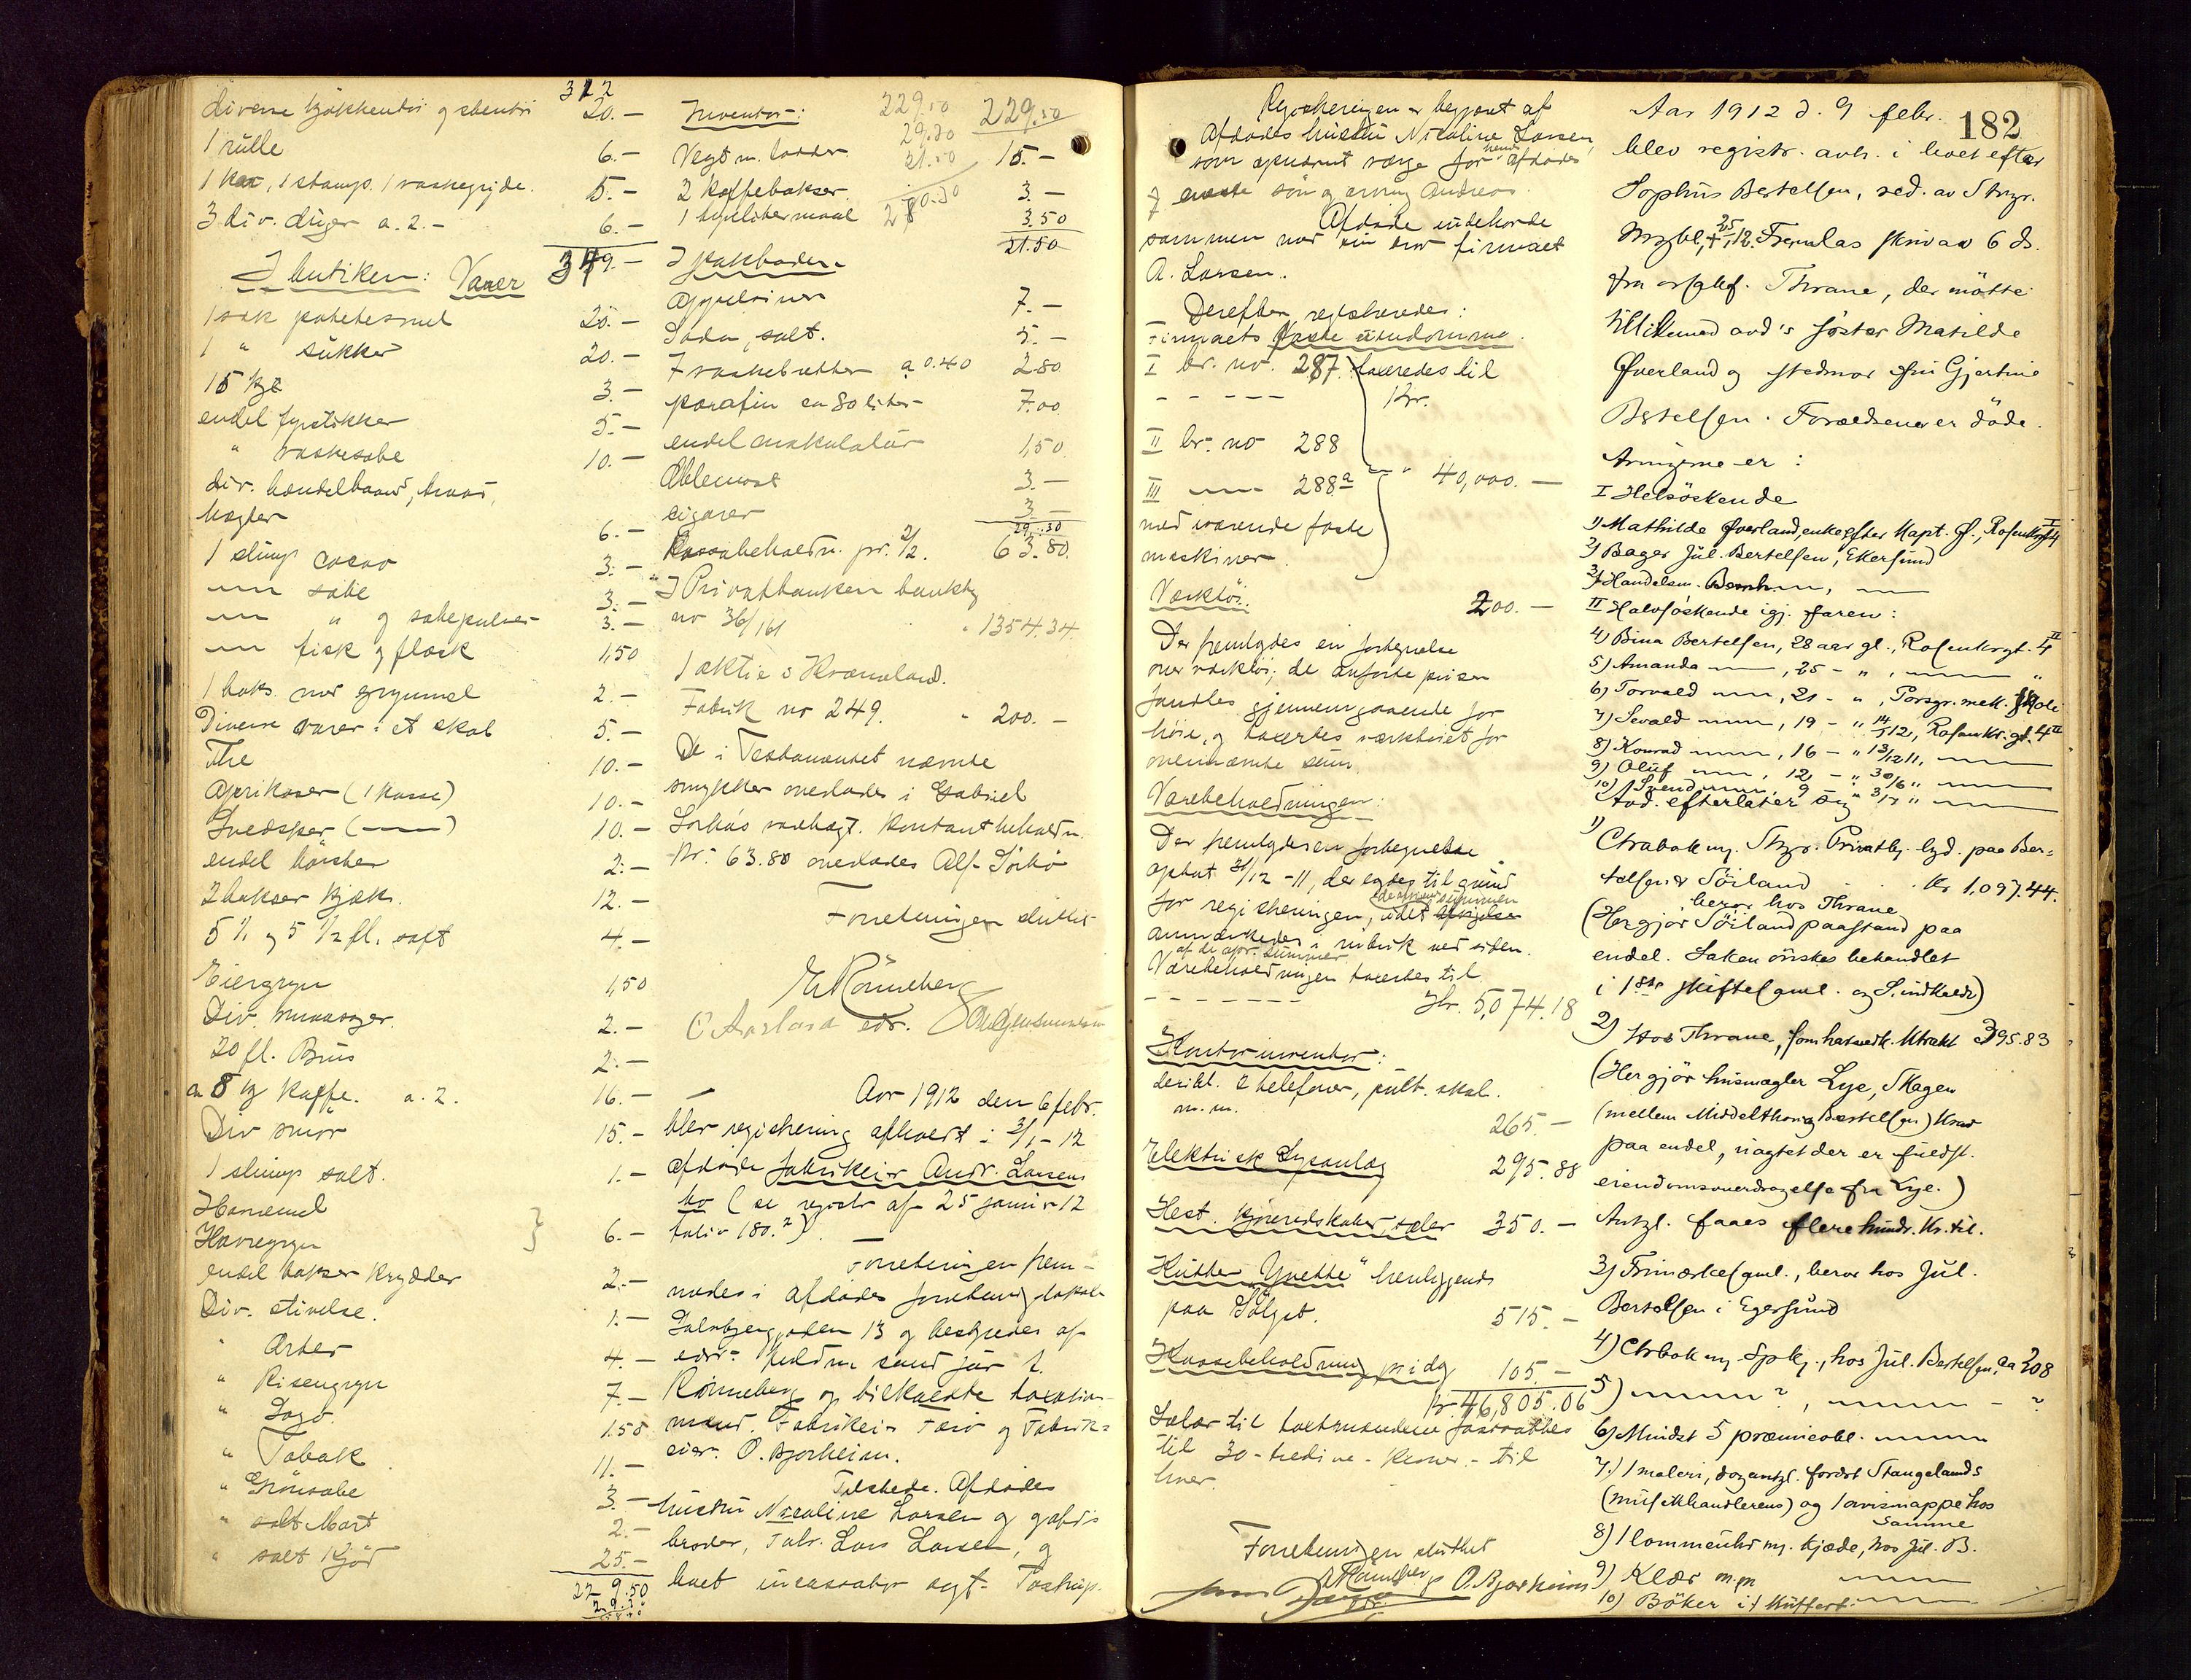 312
diverse kjökkentöi og stentöi 20.-
1 rulle 6.-
1 kar, 1 stamp. 1 vaskegryde. 5.-
3 div. duger a. 2.- 6.-
349.-
I butiken: Varer
1 sæk potetesmel 25.-
1 " sukker 20.-
15 kg 3.-
endel fyrstikker 5.-
" vaskesæbe 10.-
div. hændelbaand, traad,
hægter 6.-
1 slump cacao 3.-
— sæbe 3.-
— " og sæbepulver 3.-
— fisk og flæsk 1,50
1 boks. med grynmel 2.-
Diverse varer i et skab 5.-
The 10.-
Aprikoser (1 kasse) 10.-
Svedsker (—) 10.-
endel börster 2.-
2 bokser kjæks. 12.-
5 1/1 og 5 1/2 fl. saft 4.-
Eiergryn 1,50
Div. 2.-
20 fl. Brus 2.-
ca 8 kg kaffe. a. 2. 16.-
Div smör 15.-
1 slump salt. 1.-
Havremel
Havregryn } 6.-
endel bokser krydder 2.-
Div. stivelse. 1.-
" Erter 4.-
" Risengryn 7.-
" Sago. 1.50
" Tobak 11.-
" Grönsæbe 3.-
" salt Mort 2.-
" salt Kjöd 25.-
229.50
29.30
Inventar: 229.50 229.50
29.30
21.50
280.30
Vegt m. lodder 15.-
2 kaffebokser 3.-
1 maal 3.50
21.50
I pakboden
Appelsiner 7.-
Soda, salt. 5.-
7 vaskebretter a 0.40 2.80
parafin ca 80 liter 7.00
endel makulatur 1,50
Æblemost 3.-
cigarer 3.-
29.30
Kassabeholdn. pr. 2/2. 63.80.
I Privatbanken bankbg
no 36/161 " 1354.34
1 aktie i
Fabrik no 249. " 200.-
De i Testamentet nævnte
smykker overlades i Gabriel
Sörbös varetægt. Kontantbeholdn.
Kr. 63.80 overlades Alf Sörbö
Forretningen sluttet
E. Rönneberg
C Aarstad edr.
Aar 1912 den 6 febr.
blev registrering afholdt i 3/1 - 12
afdöde fabrikeier Andr. Larsens
bo (se registr af 25 januar 12
folio 180.2).
Forretningen frem-
mødes i afdødes forretningslokale
13 og bestyredes af
edr. fuldm
Rönneberg og tilkaldte taxations-
mænd. Fabrikeier Færö og Fabrik-
eier O. Bjorheim.
Tilstede. Afdødes
hustru Nicoline Larsen og afds
broder, Fabr. Lars Larsen, og
boet incassator agt. Tostrup.
Registreringen er begjæret af
Afdødes hustru Nicoline Larsen,
som opnævnt værge for hends afdødes
eneste sön og arving Andreas.
Afdøde indehavde
sammen med sin bror firmaet
A. Larsen.
Derefter registreredes:
Firmaets faste eiendomme.
I br. no. 287 taxeredes til
- - - - - Kr.
II br. no 288
III — 288a " 40,000.-
med iværende faste
maskiner.
Værktöi: 200.-
Der fremlagdes en fortegnelse
over værktöi; de anførte priser
fandtes gjennemgaaende for
høie, og taxertes værktöiet for
ovennævnte sum
Varebeholdningen:
Der fremlagdes en fortegnelse
optat 31/12 -11, der lagdes til grund
for registreringen, idet
anmærkedes i rubrik ved siden.
af de opr. summer
Varebeholdningen taxertes til
- - - - - - - Kr. 5,074.18
Kontorinventar:
deribl. 2 telefoner, pult. skab.
m.m. 265.-
Elektrisk Lysanlæg 295.88
Hest. kjøreredskaber, sæler 350.-
Kutter "Yvette" henliggende
paa Sölyst. 515.-
Kassebeholdning pr idag 105.-
Kr. 46,805.06
Salær til taxtmændene fastsattes
til 30 - tredive - kroner - til
hver.
Forretningen sluttet
E. Rönneberg O. Bjorheim
edr.
182
Aar 1912 d. 9 febr.
blev registr. avh. i boet efter
Sophus Bertelsen, sed. av Stvgr.
25/1 12.
fra orsglf. Thrane, der mötte
tillikemed avd's söster Matilde
Øverland og stedmor fru Gjertine
Bertelsen. Forældrene er döde.
Arvingerne er:
I Helsöskende
1) Mathilde Øverland, enke efter Kapt. Ø., Rosenkrgt 4 I
2) Bager Jul. Bertelsen, Ekersund
3) Handelsm. Bernh. —, —
II Halvsöskende igj. faren:
4) Bina Bertelsen, 28 aar gl., Rosenkrgt. 4 II
5) Amanda —, 25 - ", — "
6) Torvald —, 21 - ", Porsgr. mek. skole
7) Sevald —, 19 - " 14/5 12, Rosenkr.gt. 4 II
8) Konrad —, 16 - " 13/12 11, —
9) Oluf —, 12 - " 30/6 " —
10) Svend —, 9 - " 3/7 " —
Avd. efterlater sig
1) Ctrabok m. Stvgr. Privatbk. lyd. paa Ber-
telsen & Söiland Kr 1,097.44.
beror hos Thrane
(Her gjör Söiland paastand paa
endel. Saken önskes behandlet
i 1ste skiftesaml. og S. indkaldt)
2) Hos Thrane, som hadvedk. ktrakt 395.83
(Her gjör husmægler Lye, Skagen
(mellem Middelthon og Bertelsen) krav
paa endel, uagtet der er fuldst.
eiendomsoverdragelse fra Lye.)
Antgl. faaes flere hundr. Kr. til.
3) Frimærkesaml., beror hos Jul.
Bertelsen i Egersund
4) Ctrbok m. Spk., hos Jul. Bertelsen, ca 208
5) — ?, — - ?
6) Mindst 5 præmieobl. —
7) 1 maleri, dog antgl. fordret Stangelands
(musikhandlerens) og 1 avismappe hos
samme
8) 1 lommeuhr m. kjæde, hos Jul. B.
9) Klær m.m —
10) Böker i 1 kuffert. —